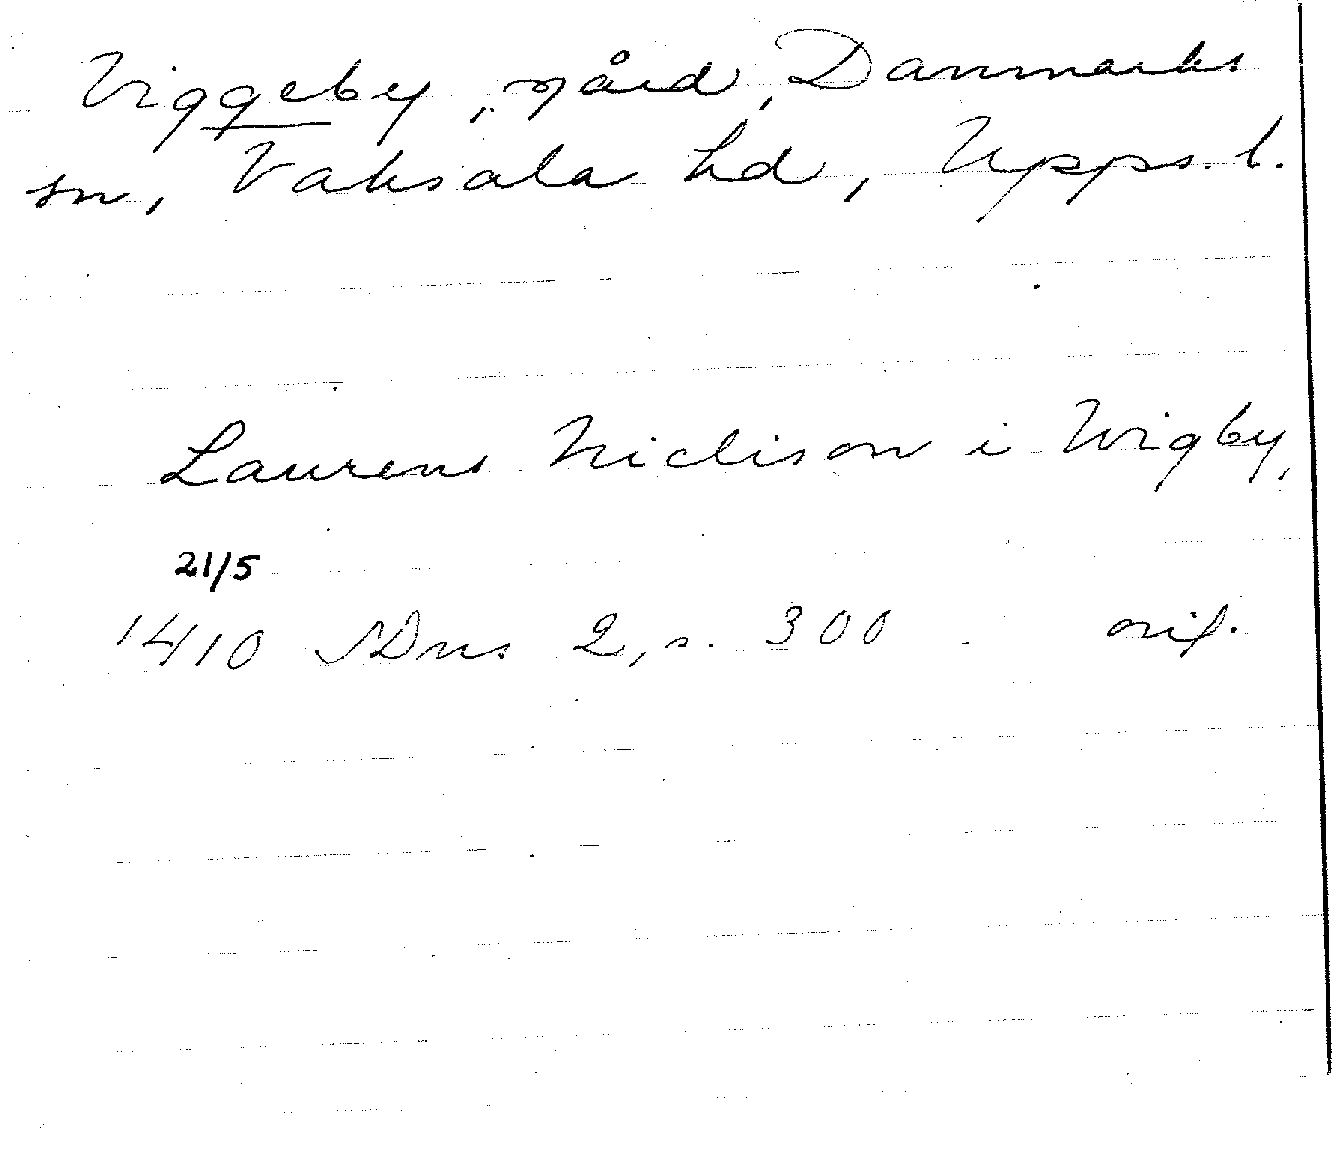 Viggeby, gård, Danmarks
sn, Vaksala hd, Upps. l.
Laurens Niclison i Wigby,
21/5
1410 SDns 2, s. 300 orig.